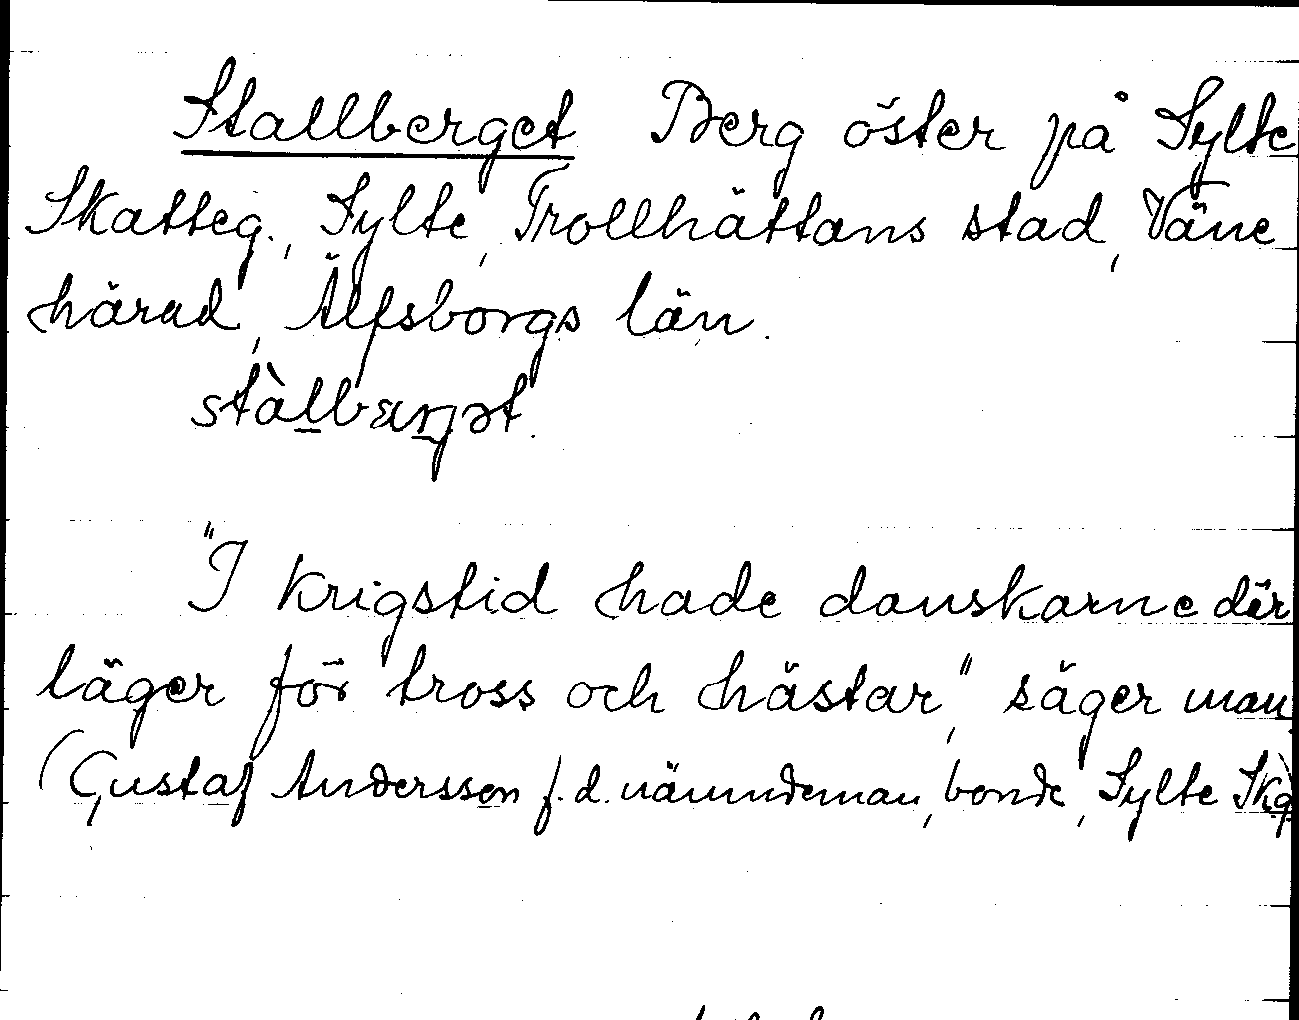 Stallberget Berg öster på Sylte
Skatteg., Sylte, Trollhättans stad, Väne
härad, Älfsborgs län.
stàlbærjət.
"I krigstid hade danskarne där
läger för tross och hästar," säger man.
(Gustaf Andersson f.d. nämndeman, bonde, Sylte Skg)